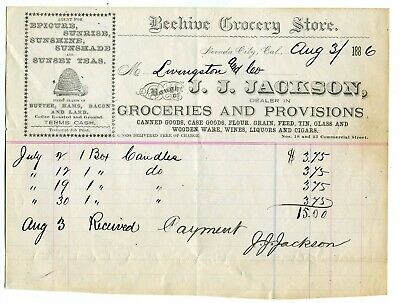 AGENT FOR
EPICURE,
SUNRISE,
SUNSHINE,
SUNSHADE
AND
SUNSET TEAS.
BEST GRADES OF
BUTTER, HAMS, BACON
AND LARD.
Coffee Roasted and Ground.
TERMS CASH.
Transcript Job Print.
Beehive Grocery Store.
Nevada City, Cal. Aug 3/ 1886
M Livingston and Co
Bought of J. J. JACKSON,
DEALER IN
GROCERIES AND PROVISIONS.
CANNED GOODS, CASE GOODS, FLOUR, GRAIN, FEED, TIN, GLASS AND
WOODEN WARE, WINES, LIQUORS AND CIGARS.
GOODS DELIVERED FREE OF CHARGE. Nos. 18 and 23 Commercial Street.
July 2 1 Box Candles $ 3.75
" 12 1 " do 3.75
" 19 1 " " 3.75
" 30 1 " " 3.75
15.00
Aug 3 Received Payment
J.J. Jackson